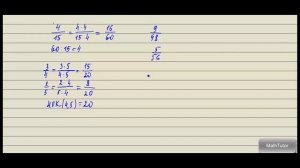 4/15 = 4·4/15·4 = 16/60
60 : 15 = 4
3/4 = 3·5/4·5 = 15/20
2/5 = 2·4/5·4 = 8/20
НОК(4,5) = 20
9/48
5/56
MathTutor